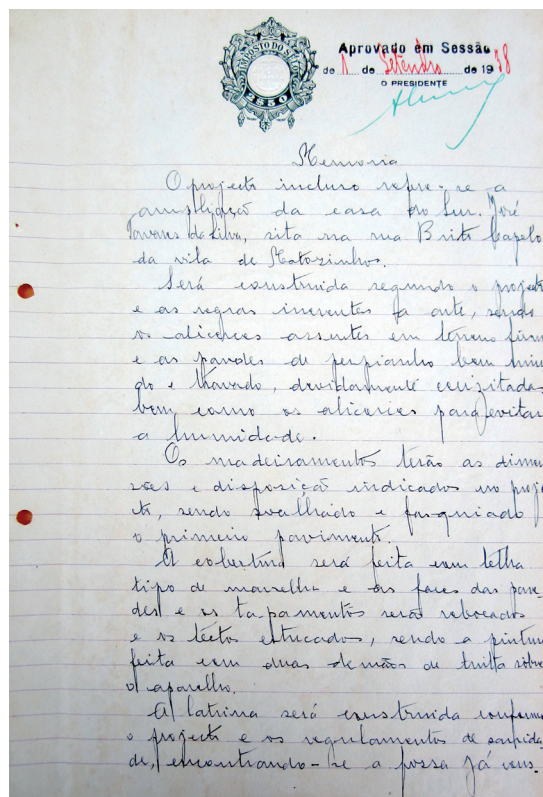 IMPOSTO DO SELO
2$50
Aprovado em Sessão
de 1 de Setembro de 1938
O PRESIDENTE
Memoria
O projecto incluso refere-se a
ampliação da casa do Snr. José
Tavares da Silva, sita na rua Brito Capelo
da vila de Matozinhos.
Será construida segundo o projecto
e as regras inerentes á arte, sendo
os alicerces assentes em terreno firme
e as paredes de perpianho bem
do e travado, devidamente
bem como os alicerces para evitar
a humidade.
Os madeiramentos terão as dimen
sões e disposição indicados no proje
to, sendo soalhado e fasquiado
o primeiro pavimento.
A cobertura será feita com telha
tipo de marselha e as faces das pare
des e os tapamentos serão rebocados
e os tectos estucados, sendo a pintura
feita com duas demãos de tinta sobre
o aparelho.
A latrina será construida conforme
o projecto e os regulamentos de
de, encontrando-se a fossa já cons-